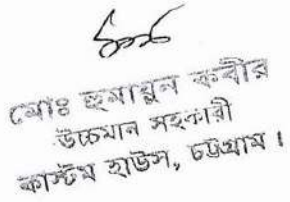 মোঃ হুমায়ুন কবীর
উচ্চমান সহকারী
কাস্টম হাউস, চট্টগ্রাম।